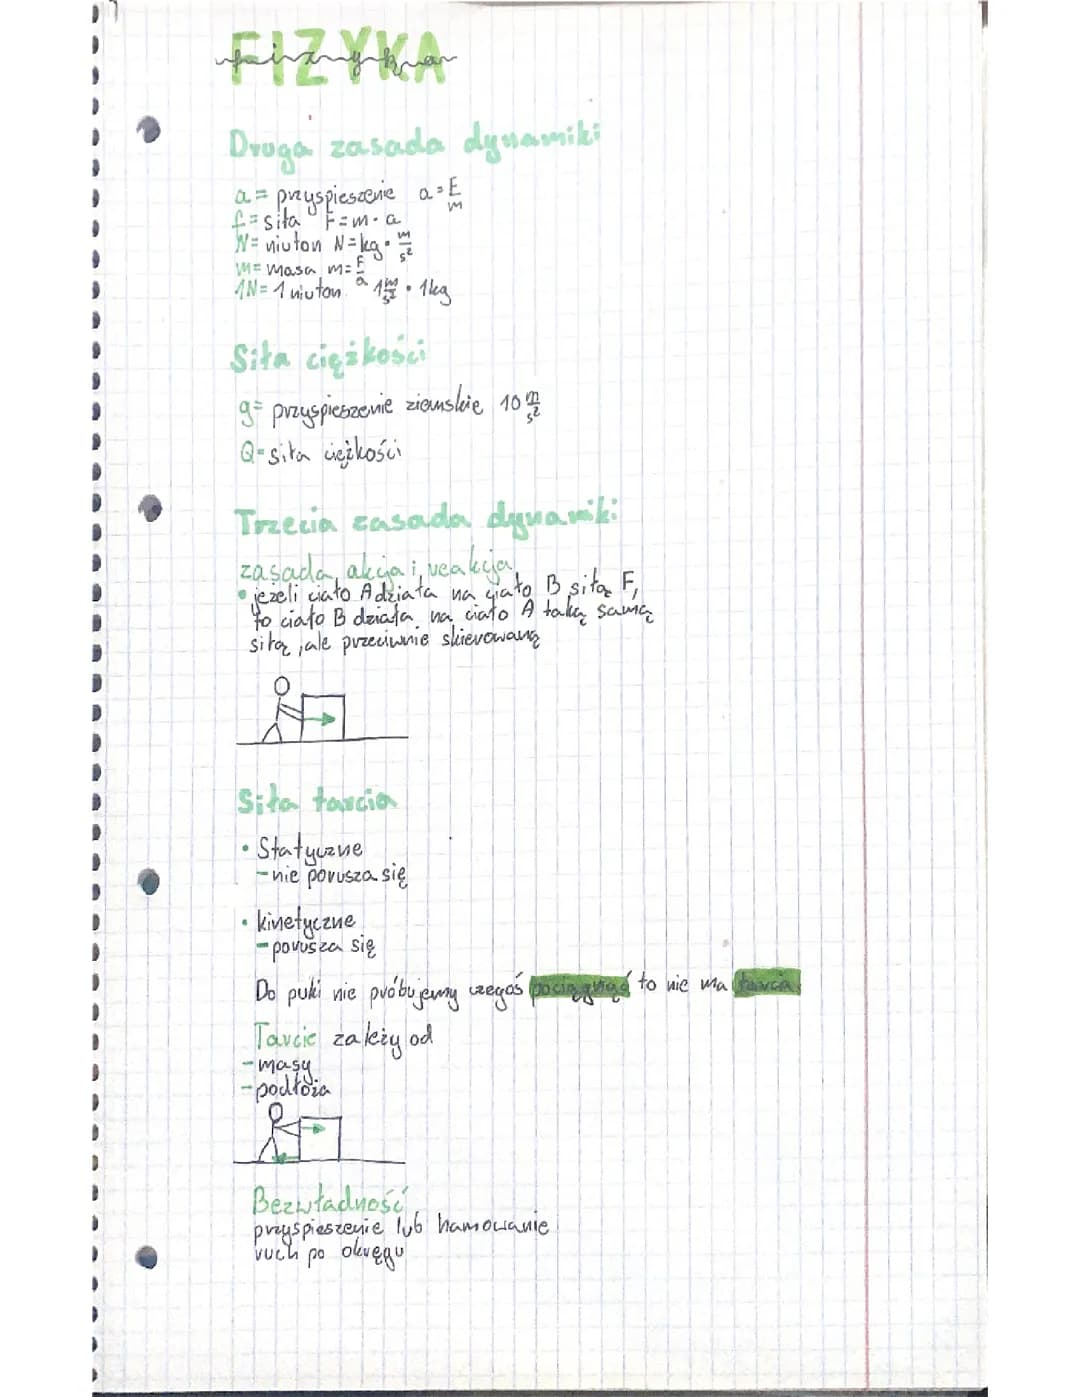 FIZYKA
fizyka
Druga zasada dynamiki
a = przyspieszenie a = F/m
f = siła F = m · a
N = niuton N = kg · m/s²
m = masa m = F/a
1N = 1 niuton 1 m/s² · 1kg
Siła ciężkości
g = przyspieszenie ziemskie 10 m/s²
Q = siła ciężkości
Trzecia zasada dynamiki
zasada akcja i reakcja
• jeżeli ciało A działa na ciało B siłą F,
to ciało B działa na ciało A taką samą
siłą, ale przeciwnie skierowaną
Siła tarcia
• Statyczne
- nie porusza się
• kinetyczne
- porusza się
Do puki nie próbujemy czegoś pociągnąć to nie ma tarcia
Tarcie zależy od
- masy
- podłoża
Bezwładność
przyspieszenie lub hamowanie
ruch po okręgu